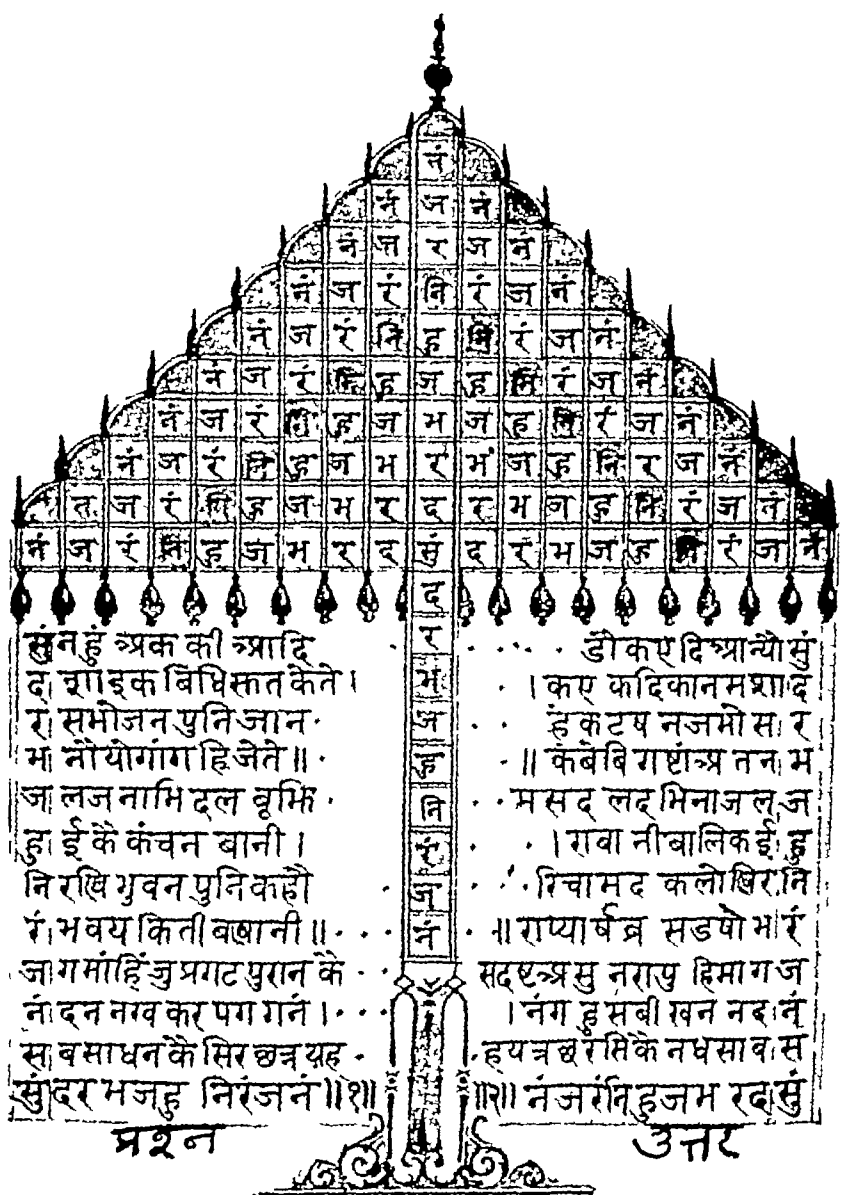 नं
नं ज नं
नं ज र ज न
नं ज रं नि रं ज नं
नं ज रं नि हु नि रं ज नं
नं ज रं नि हु ज हु नि रं ज नं
नं ज रं नि हु ज भ ज हु नि रं ज नं
नं ज रं नि हु ज भ र भ ज हु नि र ज नं
न ज रं नि हु ज भ र द र भ ज हु नि रं ज नं
नं ज रं नि हु ज भ र द सुं द र भ ज हु नि रं ज नं
द
र
भ
ज
हु
नि
रं
ज
नं
सुंनहुं त्र्प्रक की त्र्प्रादि
द शाइक बिधिसात केते।
र सभोजन पुनि जान
भ नौ योगांग हि जेते॥
ज लज नाभि दल बूझि
हु ई कै कंचन बानी।
नि रखि भुवन पुनि कहौ
रं भ वय किती बषानी॥
ज ग मांहिं जु प्रगट पुरान कै
नं दन नख कर पग गनं।
स ब साधन कै सिर छत्र यह
सुं दर भजहु निरंजनं॥१॥
प्रश्न
डौ कए दिआन्यौ सुं
।कए कदिकानमशाद
हं कटष नजभो स र
॥ कंबेबि गष्टांत्र्प्र तन भ
मसद लद भिनाजल ज
।रावा नीबालिकई हु
रिचामद कलो खिर नि
॥राप्यार्षव्र सडषो भ रं
सदष्टत्र्प्रसु नरापु हिमा ग ज
।नंग हु सबी खन नद नं
हयत्रछरसिकै नधसाव स
॥२॥ नंजरंनिहुजभ रद सुं
उत्तर